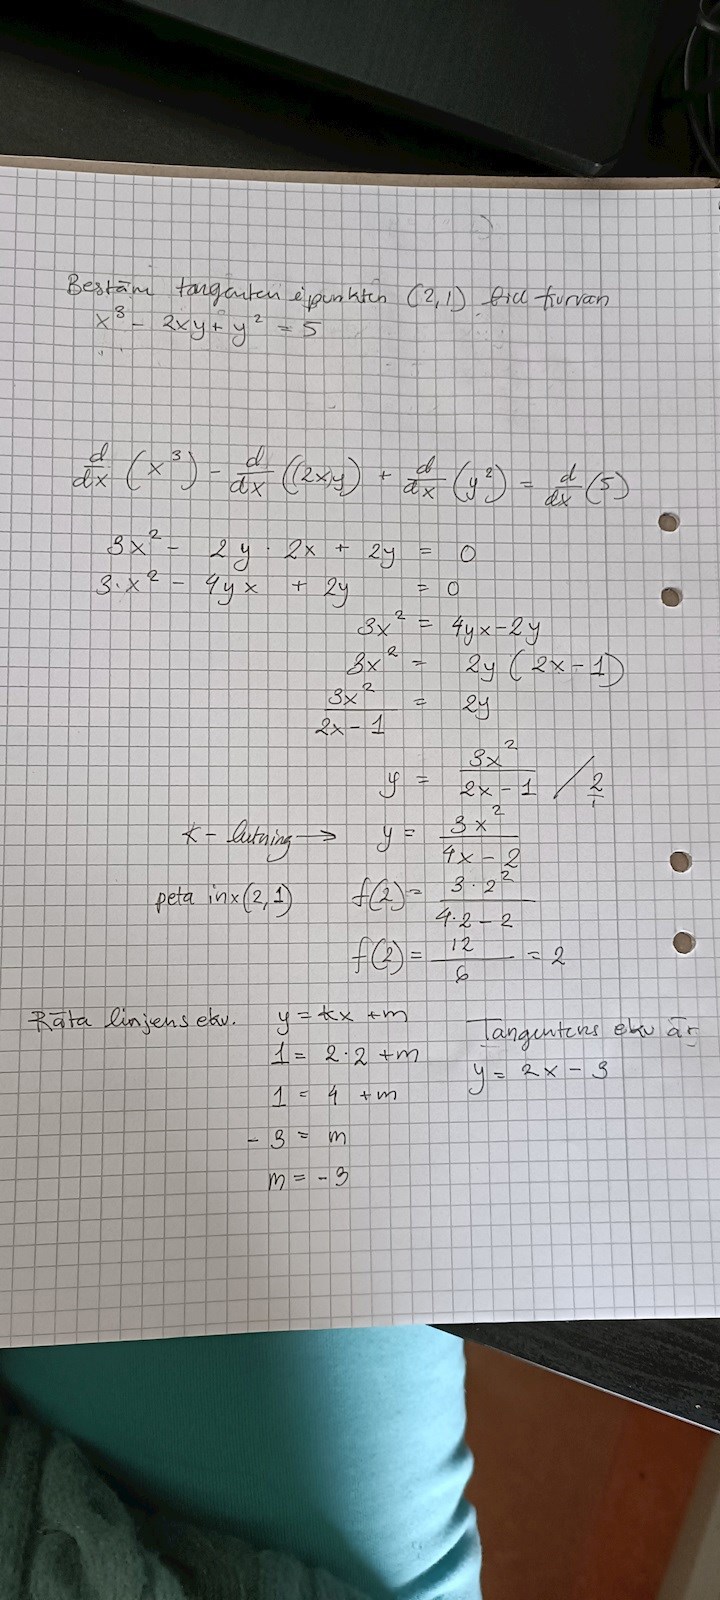 Bestäm tangenten i punkten (2,1) till kurvan
x³ - 2xy + y² = 5
d/dx (x³) - d/dx ((2x)y) + d/dx (y²) = d/dx (5)
3x² - 2y · 2x + 2y = 0
3·x² - 4yx + 2y = 0
3x² = 4yx - 2y
3x² = 2y (2x - 1)
3x²/2x - 1 = 2y
y = 3x²/2x - 1 / 2/1
k - lutning → y = 3x²/4x - 2
peta in x (2,1) f(2) = 3·2²/4·2 - 2
f(2) = 12/6 = 2
Räta linjens ekv. y = kx + m
1 = 2·2 + m
1 = 4 + m
- 3 = m
m = - 3
Tangentens ekv är
y = 2x - 3